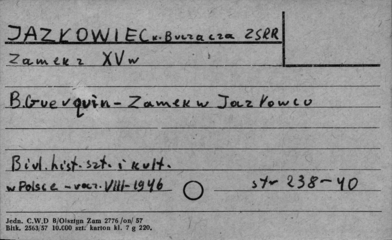 JAZKOWIEC k. Buczacza ZSRR
Zamek z XV w
B. Guerquin - Zamek w Jazkowcu
Biul. hist. szt. i kult.
w Polsce - rocz. VIII - 1946 str 238-40
Jedn. C.W.D 8/Olsztyn Zam 2776/on/57
Bltk. 2563/57 10.000 szt: karton kl. 7 g 220.